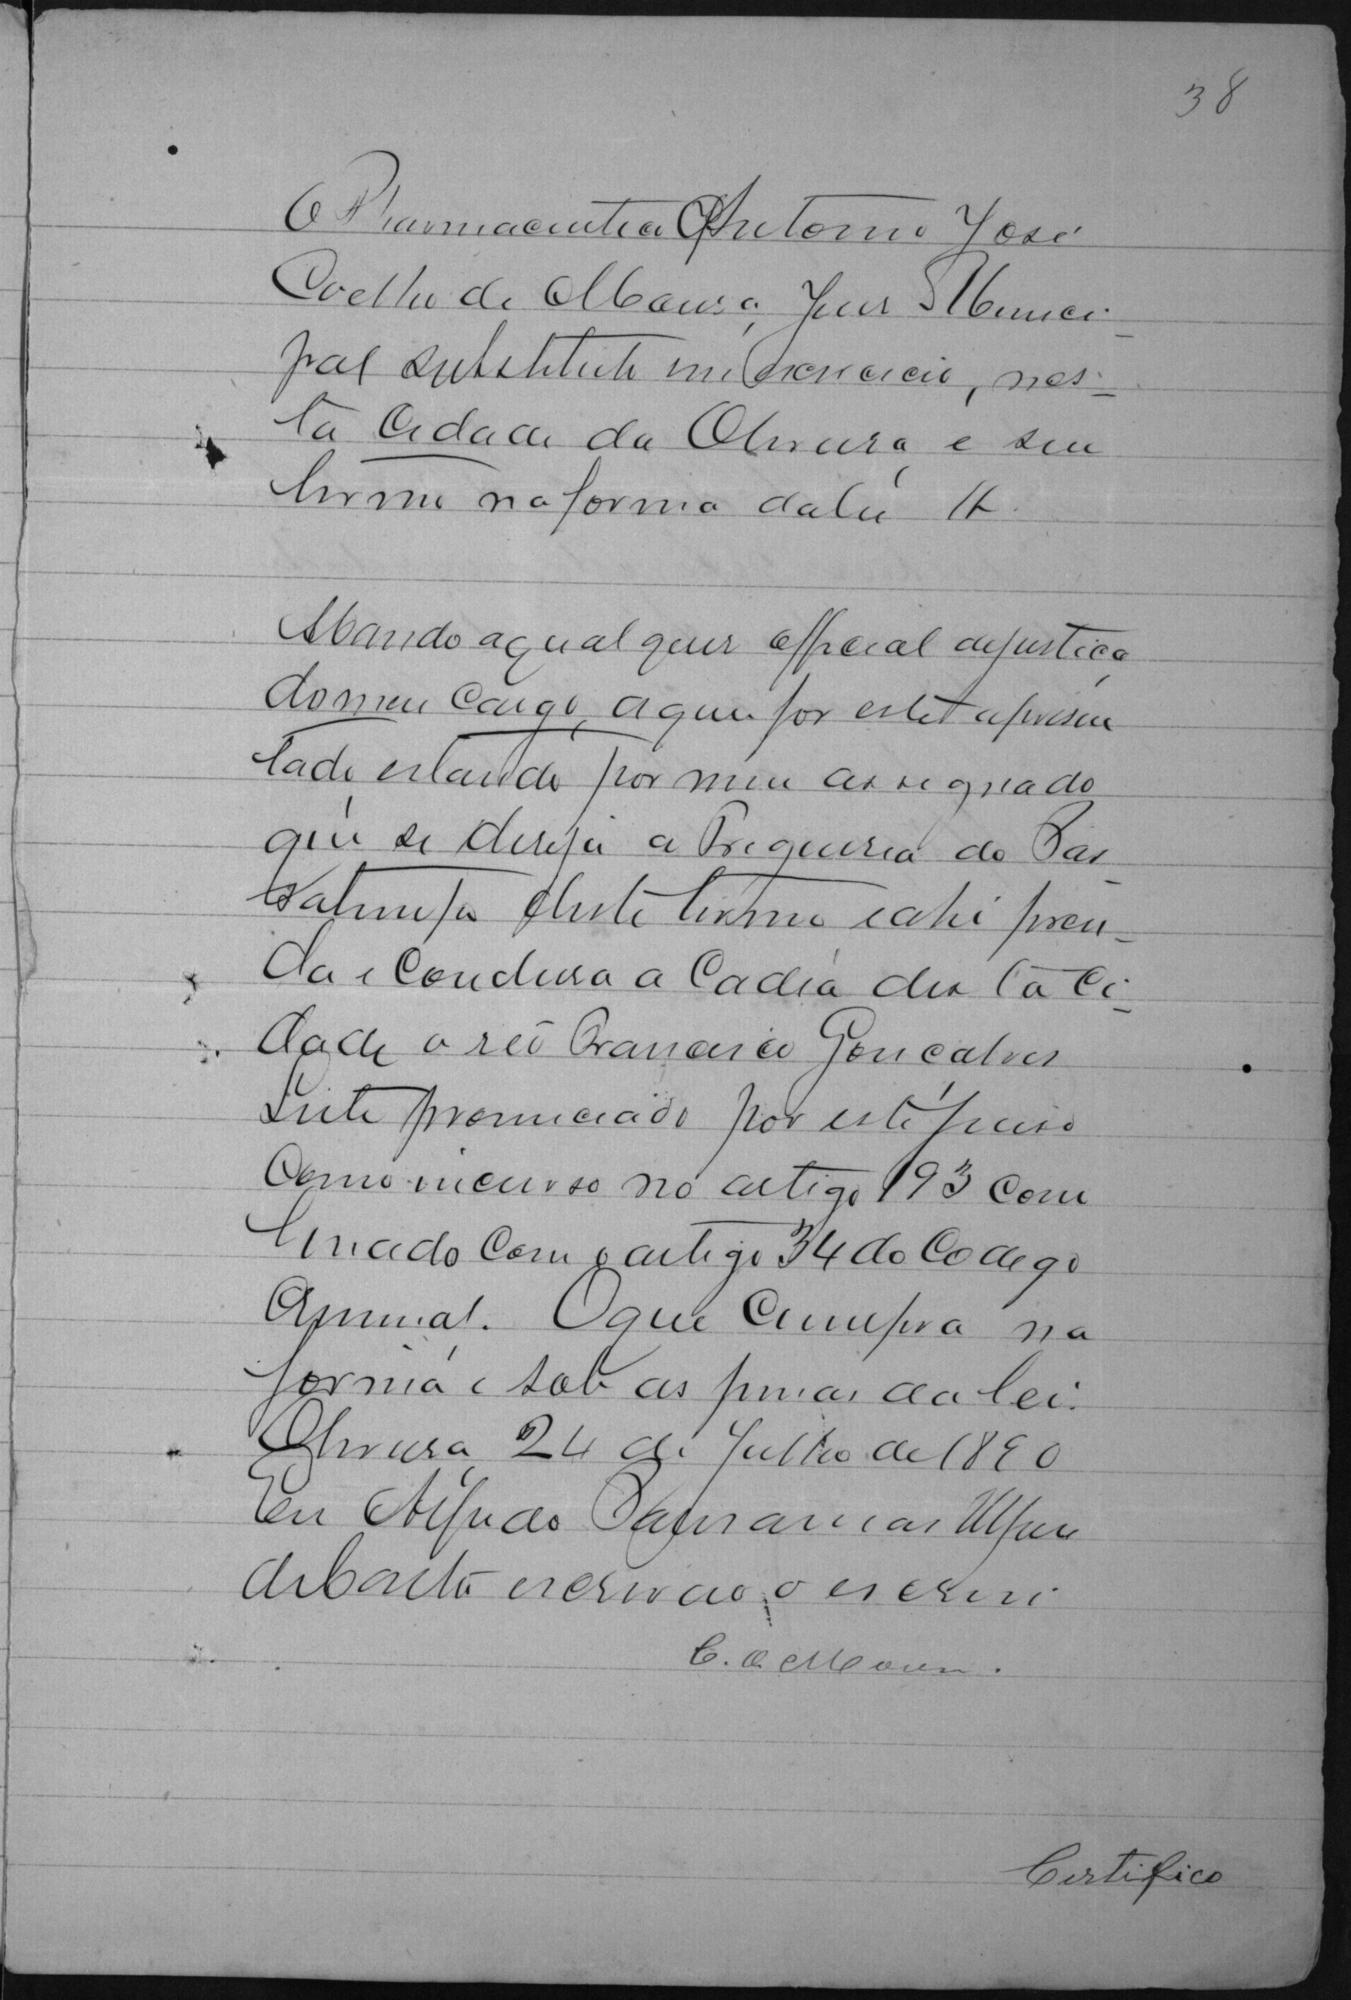 38
O Pharmaceutico Antonio José
Coelho de Moura, Juiz Munici-
pal substituto em exercicio, nes-
ta Cidade da Oliveira e seu
termo na forma da lei &
Mando a qual quer official de justiça
do meu cargo, a quem for este apresen
tado estando por mim assignado
que se dirija a Freguesia do Pas-
satempo deste termo e ahi pren-
da e conduza a Cadêa des ta Ci-
dade o réo Francisco Gonçalves
Leite pronunciado por este juizo
como incurso no artigo 193 com
binado com o artigo 34 do Codego
Criminal. O que cumpra na
forma e sob as penas da lei.
Oliveira 24 de Julho de 1890
Eu Alfredo
de Castro escrivão o escrevi
C. de Moura.
Certifico